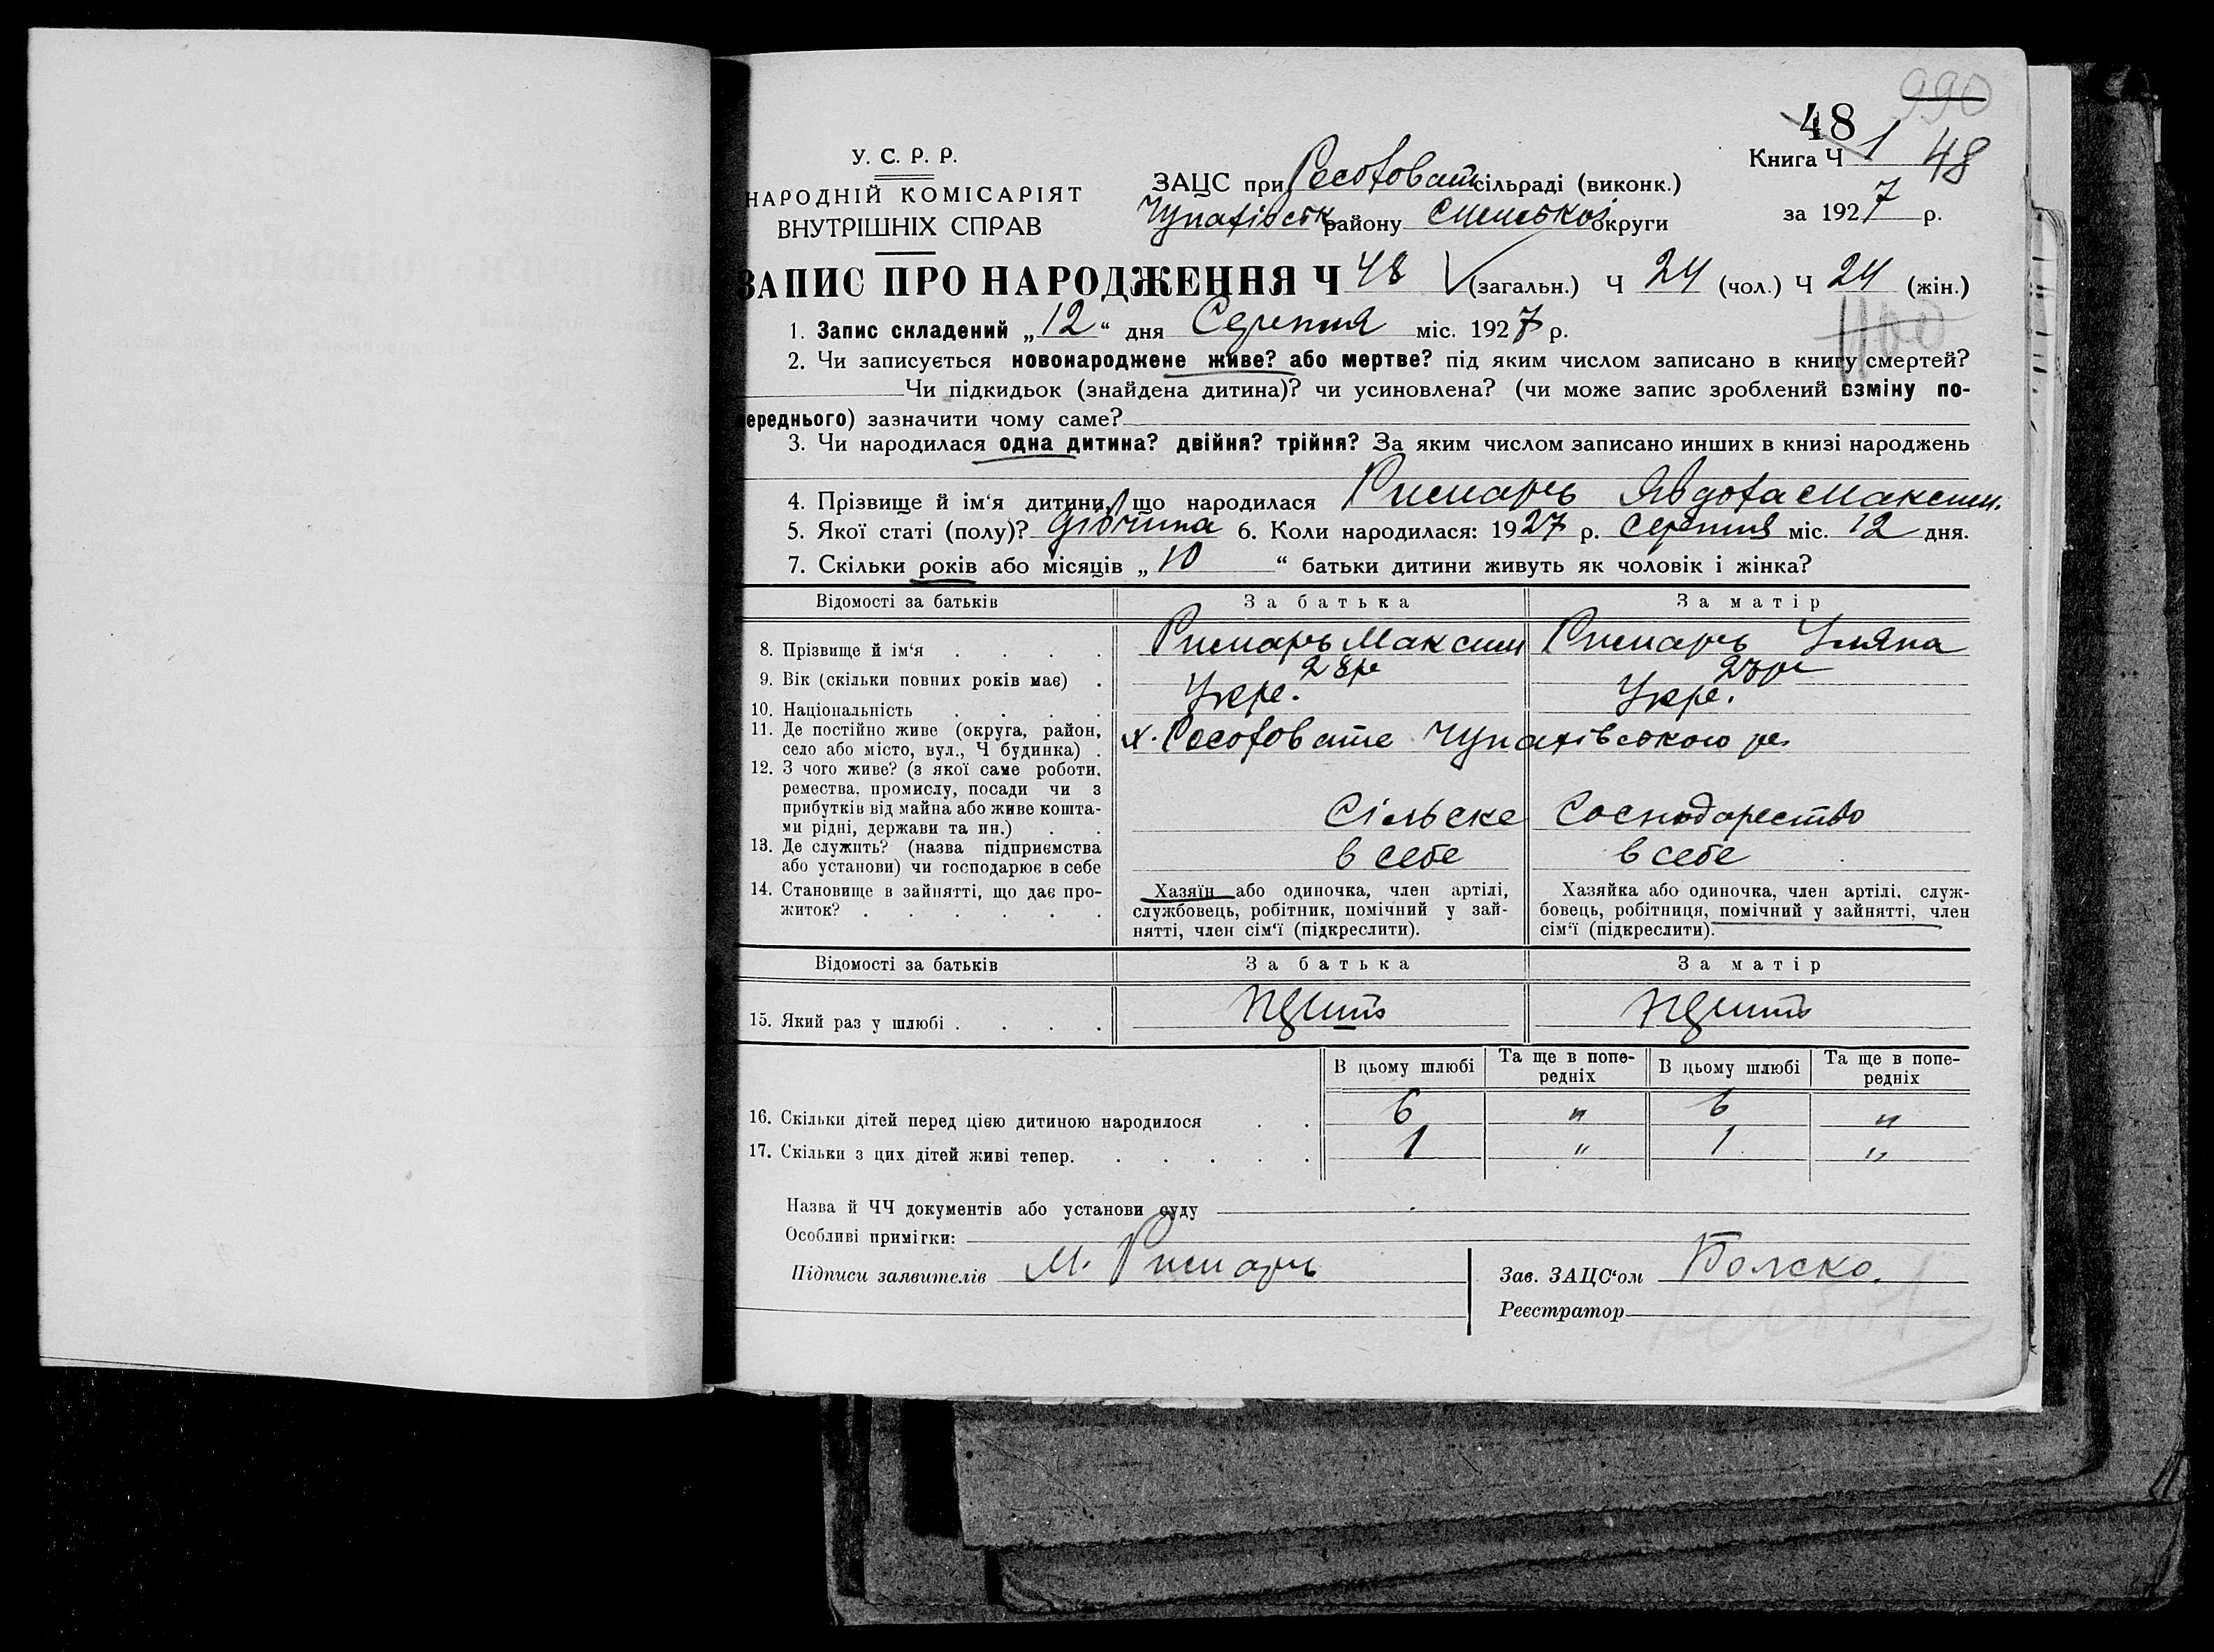 990
48
У. С. Р. Р.
Книга Ч 1 48
НАРОДНІЙ КОМІСАРІЯТ
ЗАЦС при Росоховат сільраді (виконк.)
ВНУТРІШНІХ СПРАВ
Чупахівськ району Сумської округи
за 1927 р.
ЗАПИС ПРО НАРОДЖЕННЯ Ч 48 (загальн.) Ч 24 (чол.) Ч 24 (жін.)
1. Запис складений „12“ дня Серпня міс. 1927 р.
2. Чи записується новонароджене живе? або мертве? під яким числом записано в книгу смертей?
Чи підкидьок (знайдена дитина)? чи усиновлена? (чи може запис зроблений взміну по-
ереднього) зазначити чому саме?
3. Чи народилася одна дитина? двійня? трійня? За яким числом записано инших в книзі народжень
4. Прізвище й ім‘я дитини, що народилася Римарь Явдоха Максим.
5. Якої статі (полу)? дівчина 6. Коли народилася: 1927 р. Серпня міс. 12 дня.
7. Скільки років або місяців „10“ батьки дитини живуть як чоловік і жінка?
Відомості за батьків За батька За матір
8. Прізвище й ім‘я Римарь Максим Римарь Уляна
9. Вік (скільки повних років має) 28р 27р
10. Національність Укр. Укр.
11. Де постійно живе (округа, район,
село або місто, вул., Ч будинка) х. Росоховате Чупахівського р.
12. З чого живе? (з якої саме роботи,
ремества, промислу, посади чи з
прибутків від майна або живе кошта-
ми рідні, держави та ин.) Сільске Господарество
13. Де служить? (назва підприємства
або установи) чи господарює в себе в себе в себе
14. Становище в зайнятті, що дає про-
житок?
Хазяїн або одиночка, член артілі,
службовець, робітник, помічний у зай-
нятті, член сім‘ї (підкреслити).
Хазяйка або одиночка, член артілі, служ-
бовець, робітниця, помічний у зайнятті, член
сім‘ї (підкреслити).
Відомості за батьків За батька За матір
15. Який раз у шлюбі
В цьому шлюбі Та ще в попе-
редніх В цьому шлюбі Та ще в попе-
редніх
16. Скільки дітей перед цією дитиною народилося 6 " 6 "
17. Скільки з цих дітей живі тепер. 1 " 1 "
Назва й ЧЧ документів або установи суду
Особливі примітки:
Підписи заявителів М. Римарь
Зав. ЗАЦС‘ом
Реєстратор